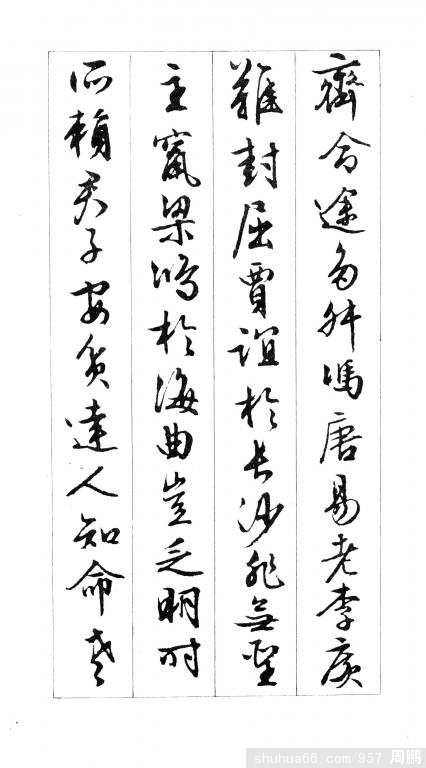 齊命途多舛馮唐易老李廣
難封屈賈誼於長沙非無聖
主竄梁鴻於海曲豈乏明時
所賴君子安貧達人知命老
shuhua66.com/957 周鹏